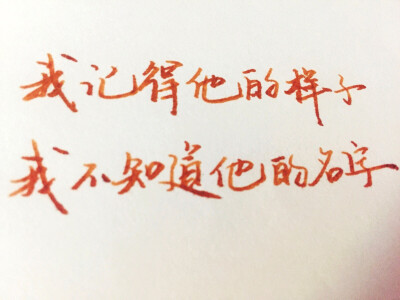 我记得他的样子
我不知道他的名字